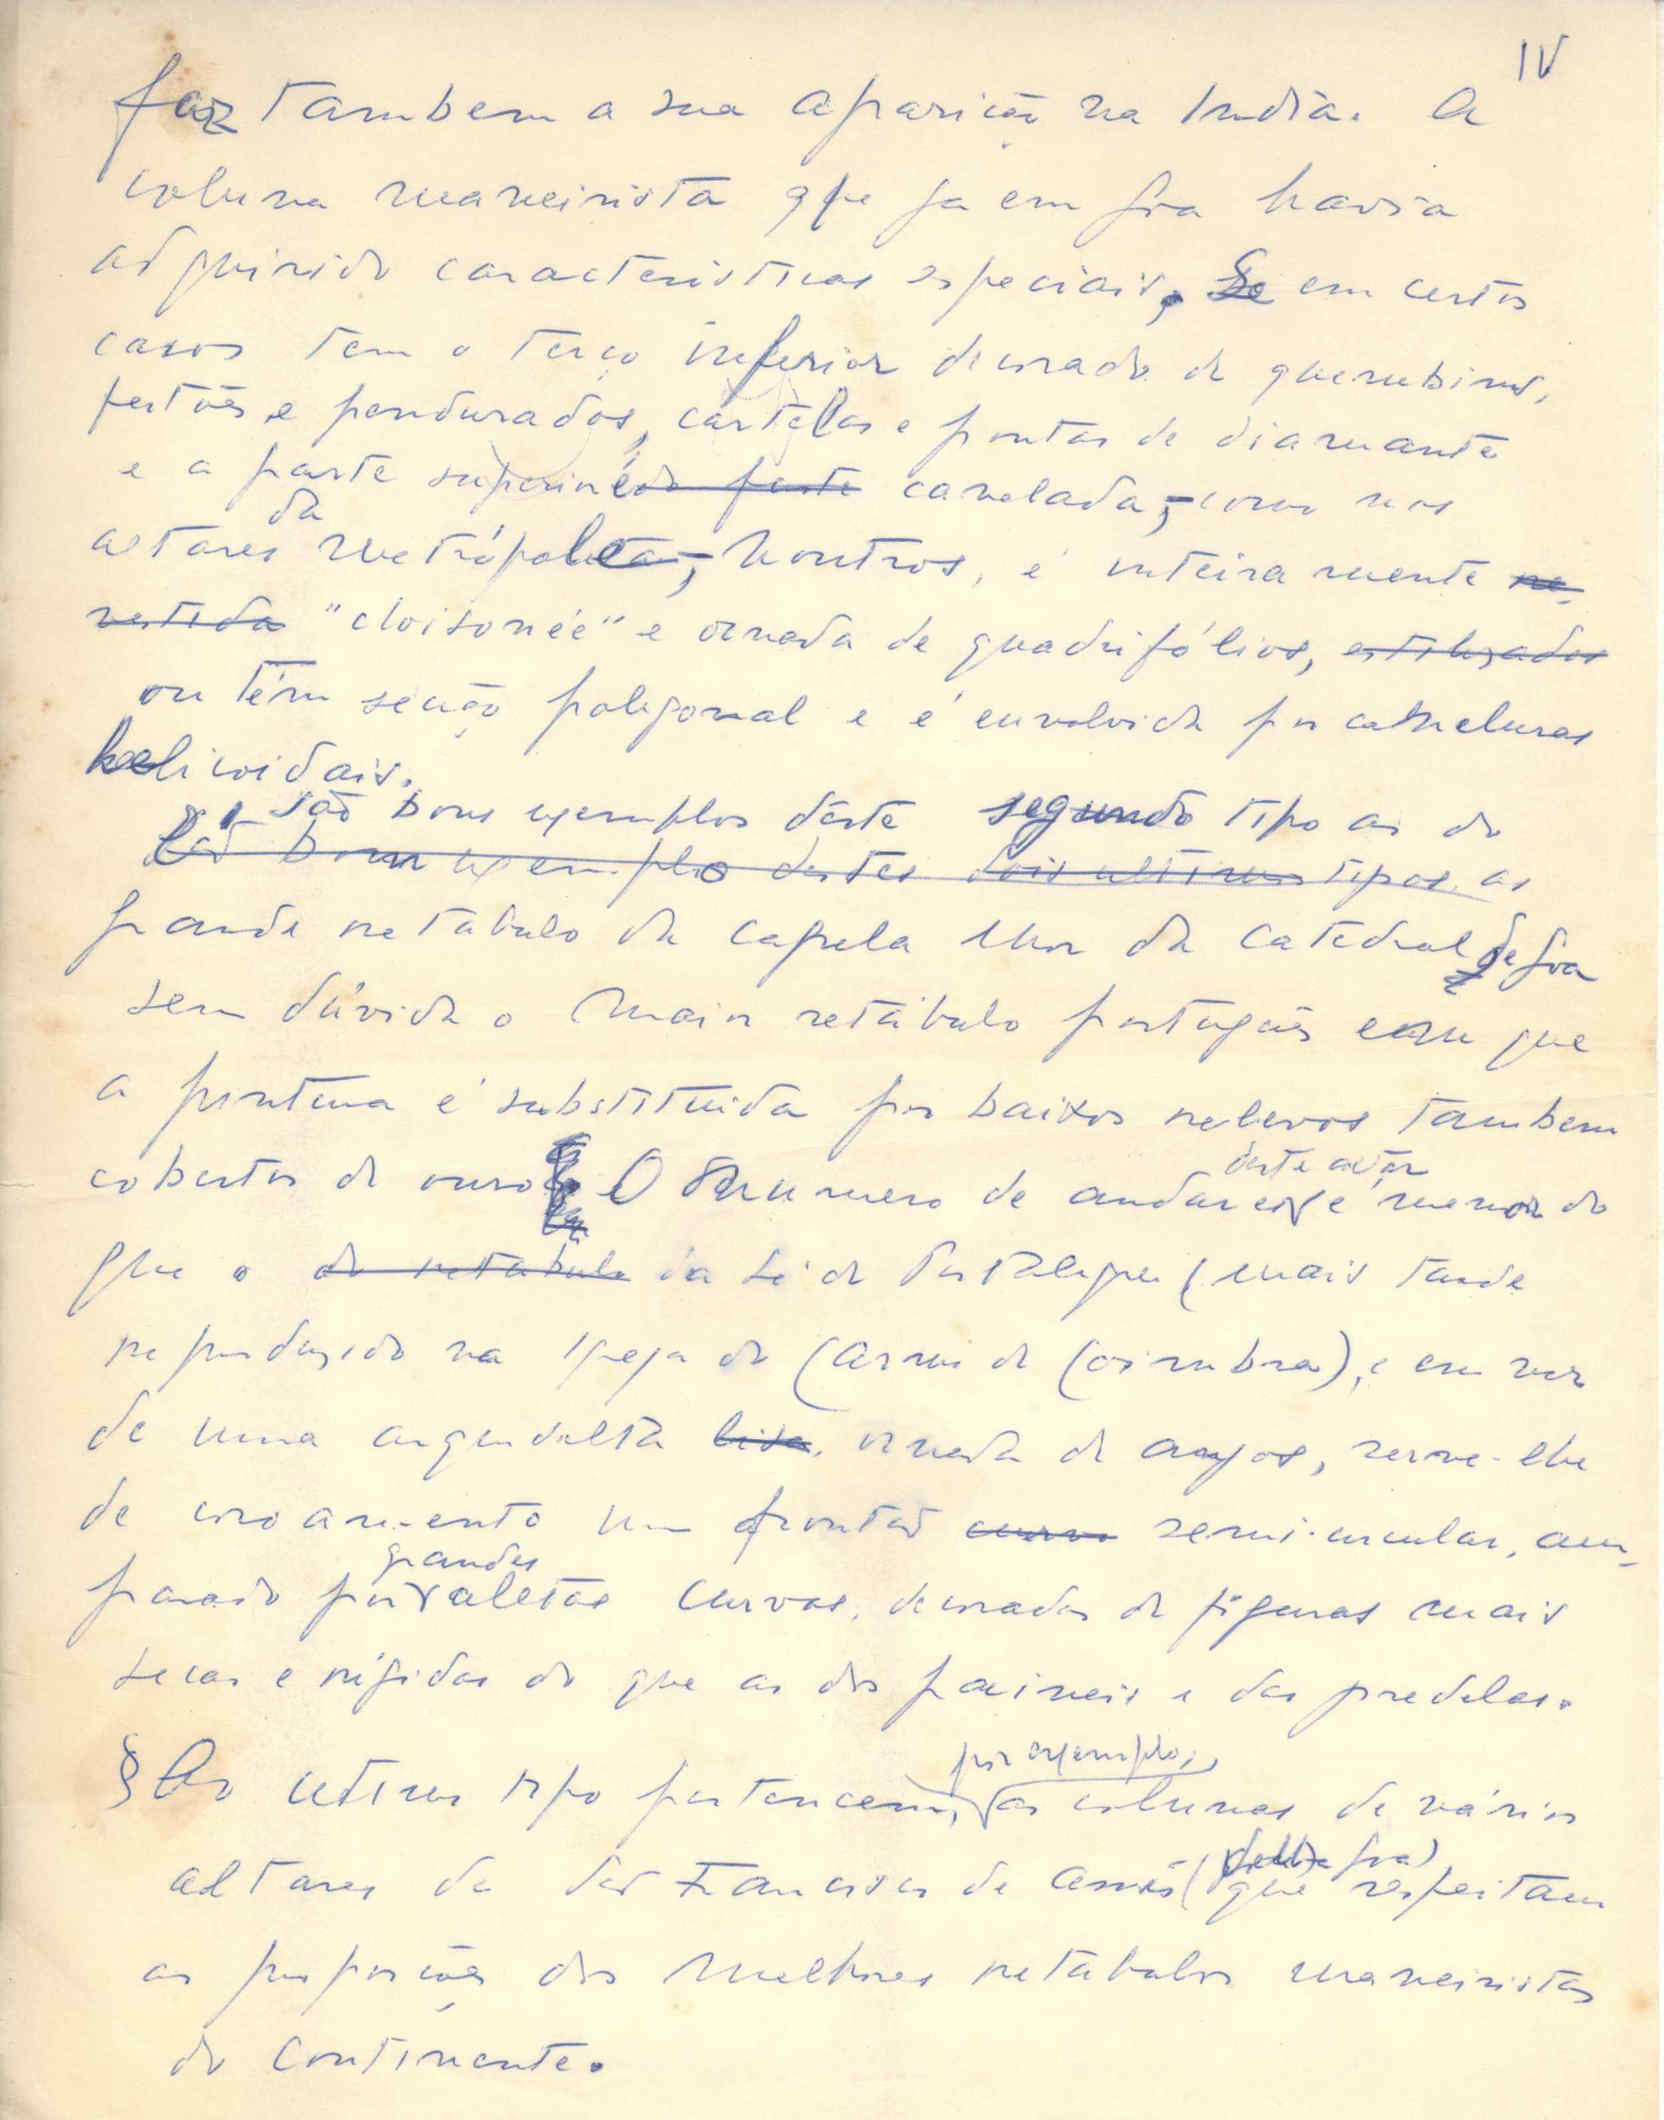 IV
faz tambem a sua aparição na India. A
coluna maneirista que ja em Goa havia
adquirido caracteristicas especiais, se em certos
casos tem o terço inferior decorado de querubins,
festões e pendurados, cartelas e pontas de diamante
e a parte superior canelada, como nos
altares da metrópole, noutros, é inteiramente re-
vestida "cloisonée" e ornada de quadrifólios, estilizados
ou têm secção poligonal e é envolvida por caneluras
helicoidais.
São bons exemplos deste segundo tipo as do
São bom exemplo destes dois ultimos tipos as
grande retabulo da capela mor da catedral de Goa
sem dúvida o maior retábulo português em que
a pintura é substituida por baixos relevos tambem
cobertos de ouro O numero de andares deste altar é menor do
que o do retabulo da Sé de Portalegre (mais tarde
reproduzido na Igreja do Carmo de Coimbra), e em vez
de uma arquivolta lisa, ornada de anjos, serve-lhe
de coroamento um frontão curvo semi-circular, am-
parado por grandes aletas curvas, decoradas de figuras mais
secas e rígidas do que as dos paineis e das predelas.
§ Ao ultimo tipo pertencem, por exemplo, as colunas de vários
altares de São Francisco de Assis (Velha Goa) que respeitam
as proporções dos melhores retabulos maneiristas
do Continente.